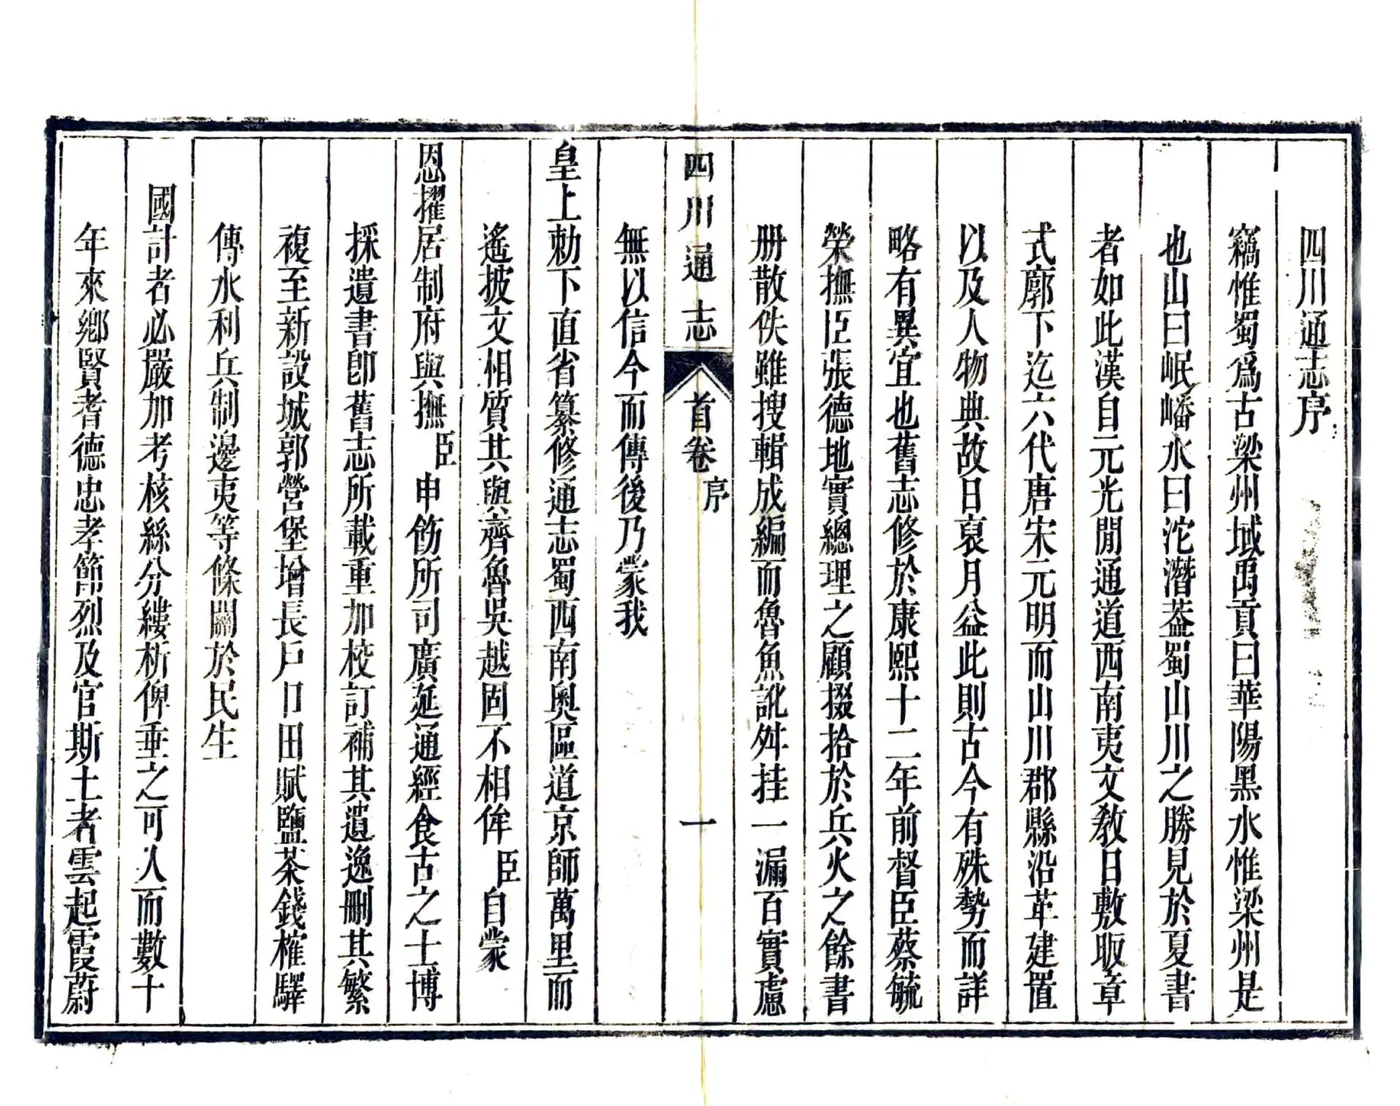 四川通志序
竊惟蜀爲古梁州域禹貢曰華陽黑水惟梁州是
也山曰岷嶓水曰沱潛葢蜀山川之勝見於夏書
者如此漢自元光閒通道西南夷文敎日敷昄章
式廓下迄六代唐宋元明而山川郡縣沿革建置
以及人物典故日裒月益此則古今有殊勢而詳
略有異宜也舊志修於康熙十二年前督臣蔡毓
榮撫臣張德地實總理之顧掇拾於兵火之餘書
册散佚雖搜輯成編而魯魚訛舛挂一漏百實慮
無以信今而傳後乃蒙我
四川通志
首卷
序
一
皇上勅下直省纂修通志蜀西南奧區道京師萬里而
遙披文相質其與齊魯吳越固不相侔臣自蒙
恩擢居制府與撫臣申飭所司廣延通經食古之士博
採遺書卽舊志所載重加校訂補其遺逸刪其繁
複至新設城郭營堡增長戶口田賦鹽茶錢榷驛
傳水利兵制邊夷等條關於民生
國計者必嚴加考核絲分縷析俾垂之可久而數十
年來鄉賢耆德忠孝節烈及官斯土者雲起霞蔚